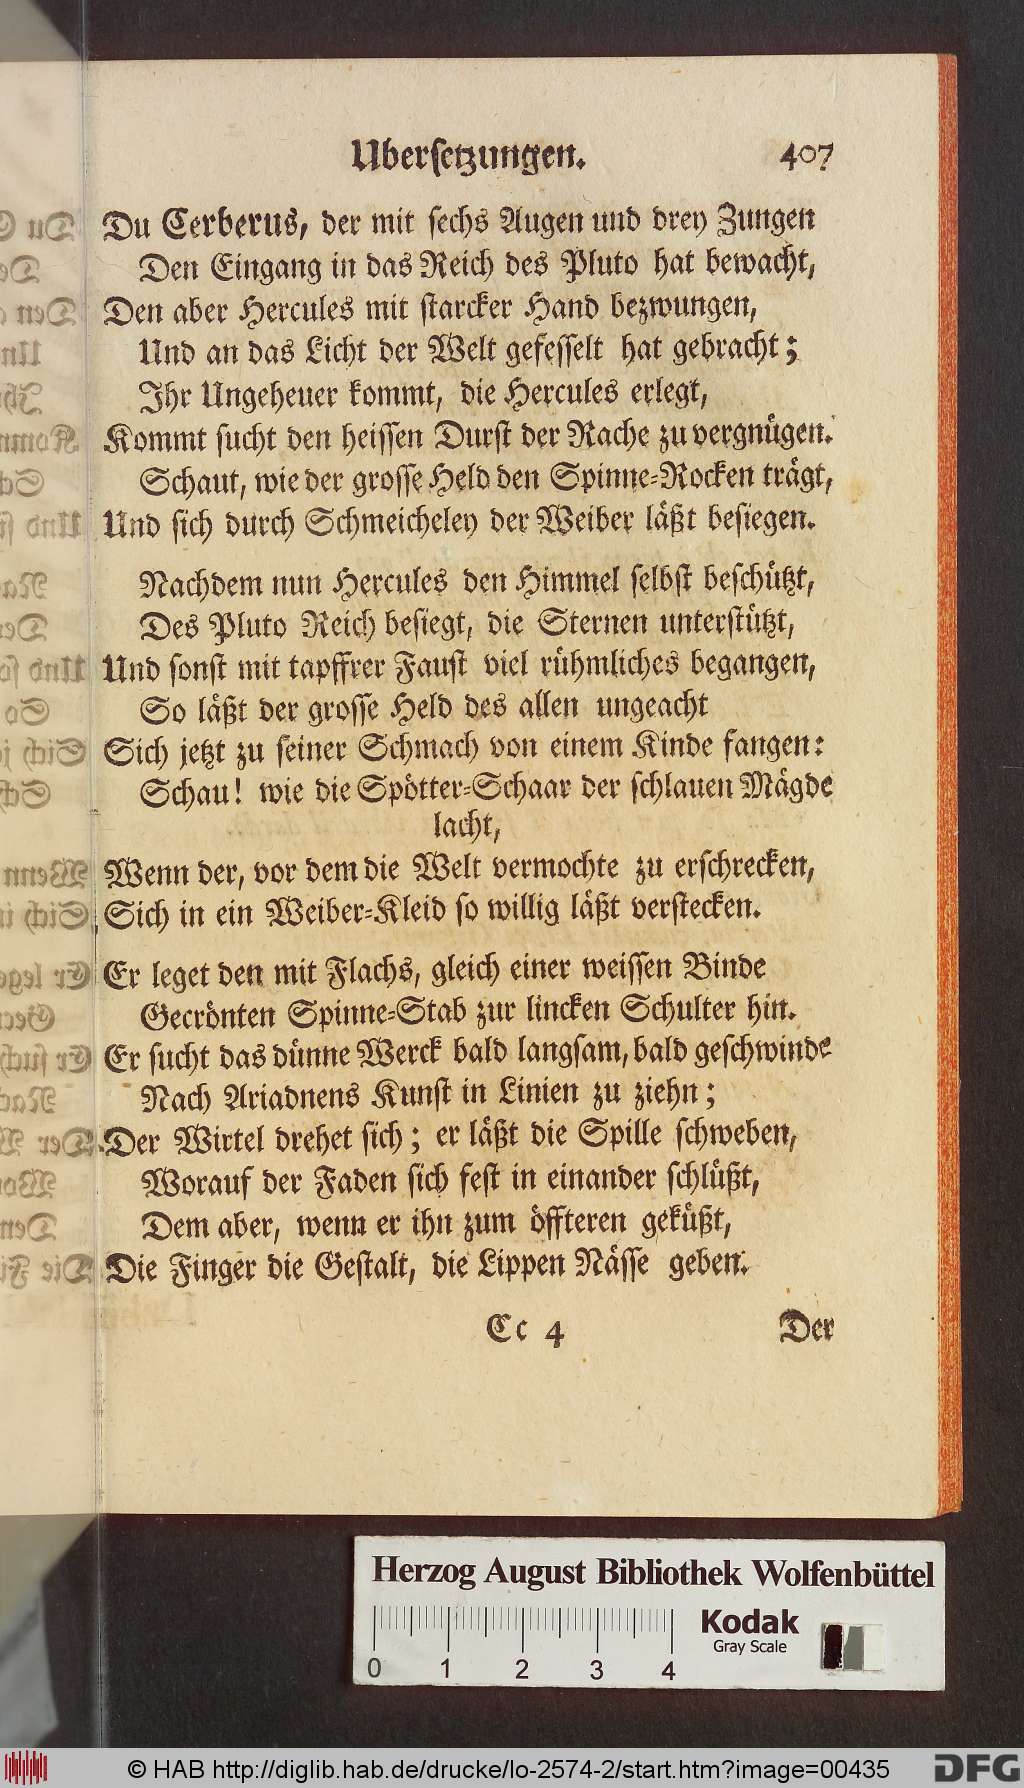 Ubersetzungen. 407
Du Cerberus, der mit sechs Augen und drey Zungen
Den Eingang in das Reich des Pluto hat bewacht,
Den aber Hercules mit starcker Hand bezwungen,
Und an das Licht der Welt gefesselt hat gebracht;
Ihr Ungeheuer kommt, die Hercules erlegt,
Kommt sucht den heissen Durst der Rache zu vergnügen.
Schaut, wie der grosse Held den Spinne-Rocken trägt,
Und sich durch Schmeicheley der Weiber läßt besiegen.
Nachdem nun Hercules den Himmel selbst beschützt,
Des Pluto Reich besiegt, die Sternen unterstützt,
Und sonst mit tapffrer Faust viel rühmliches begangen,
So läßt der grosse Held des allen ungeacht
Sich jetzt zu seiner Schmach von einem Kinde fangen:
Schau! wie die Spötter-Schaar der schlauen Mägde
lacht,
Wenn der, vor dem die Welt vermochte zu erschrecken,
Sich in ein Weiber-Kleid so willig läßt verstecken.
Er leget den mit Flachs, gleich einer weissen Binde
Gecrönten Spinne-Stab zur lincken Schulter hin.
Er sucht das dünne Werck bald langsam, bald geschwinde
Nach Ariadnens Kunst in Linien zu ziehn;
Der Wirtel drehet sich; er läßt die Spille schweben,
Worauf der Faden sich fest in einander schlüßt,
Dem aber, wenn er ihn zum öffteren geküßt,
Die Finger die Gestalt, die Lippen Nässe geben.
Cc 4 Der
Herzog August Bibliothek Wolfenbüttel
Kodak
Gray Scale
0 1 2 3 4
© HAB http://diglib.hab.de/drucke/lo-2574-2/start.htm?image=00435
DFG